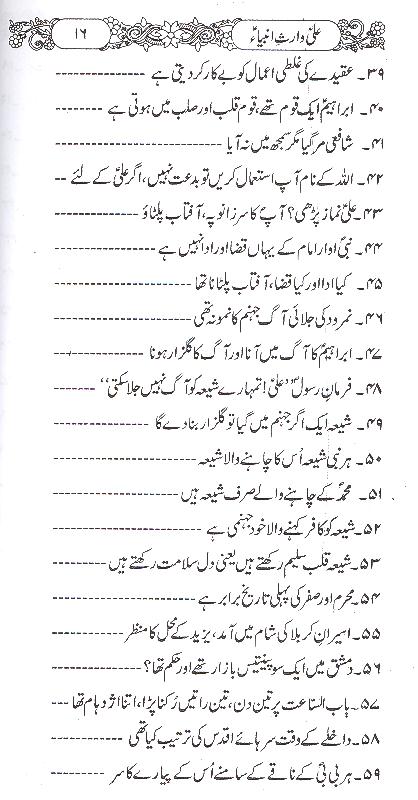 علیؑ وارثِ انبیاءؑ
۱۶
۳۹۔ عقیدے کی غلطی اعمال کو بے کار کر دیتی ہے ------------
۴۰۔ ابراہیمؑ ایک قوم تھے، قوم قلب اور صلب میں ہوتی ہے --------
۴۱۔ شافعی مر گیا مگر سمجھ میں نہ آیا ----------------
۴۲۔ اللہ کے نام آپ استعمال کریں تو بدعت نہیں، اگر علیؑ کے لئے --
۴۳۔ علیؑ نماز پڑھی؟ آپؐ کا سر زانو پہ، آفتاب پلٹاؤ -----------
۴۴۔ نبیؐ اور امام کے یہاں قضا اور ادا نہیں ہے -------------
۴۵۔ کیا ادا اور کیا قضا، آفتاب پلٹانا تھا ----------------
۴۶۔ نمرود کی جلائی آگ جہنم کا نمونہ تھی ----------------
۴۷۔ ابراہیمؑ کا آگ میں آنا اور آگ کا گلزار ہونا -----------
۴۸۔ فرمانِ رسولؐ ’’علیؑ! تمہارے شیعہ کو آگ نہیں جلا سکتی‘‘ ------
۴۹۔ شیعہ ایک اگر جہنم میں گیا تو گلزار بنا دے گا ------------
۵۰۔ ہر نبی شیعہ اُس کا چاہنے والا شیعہ -----------------
۵۱۔ محمدؐ کے چاہنے والے صرف شیعہ ہیں ----------------
۵۲۔ شیعہ کو کافر کہنے والا خود جہنمی ہے ----------------
۵۳۔ شیعہ قلب سلیم رکھتے ہیں یعنی دل سلامت رکھتے ہیں --------
۵۴۔ محرم اور صفر کی پہلی تاریخ برابر ہے ----------------
۵۵۔ اسیرانِ کربلا کی شام میں آمد، یزید کے محل کا منظر ---------
۵۶۔ دمشق میں ایک سو پینتیس بازار تھے اور حکم تھا؟ -----------
۵۷۔ باب الساعت پر تین دن، تین راتیں رُکنا پڑا، اتنا اژدہام تھا ---
۵۸۔ داخلے کے وقت سر ہائے اقدس کی ترتیب کیا تھی ----------
۵۹۔ ہر بی بیؑ کے ناقے کے سامنے اُس کے پیارے کا سر --------